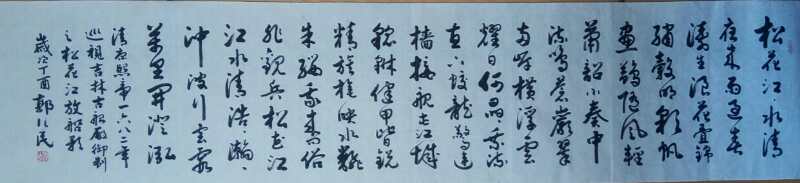 松花江水清
夜來雨過春
濤生浪花疊錦
繡縠明彩帆
畫鷁隨風輕
簫韶小奏中
流鳴蒼巖翠
兩岸橫浮雲
耀日何晶乘流
直下蛟龍驚連
檣接艦屯江城
貔貅健甲皆銳
精旌旄映水翻
朱纓我來問俗
非觀兵松花江
江水清浩浩瀚瀚
沖波行雲霞
萬里開澄泓
清康熙帝一六八二年
巡視吉林吉船廠御制
之松花江放船歌
歲次丁酉 郭 民